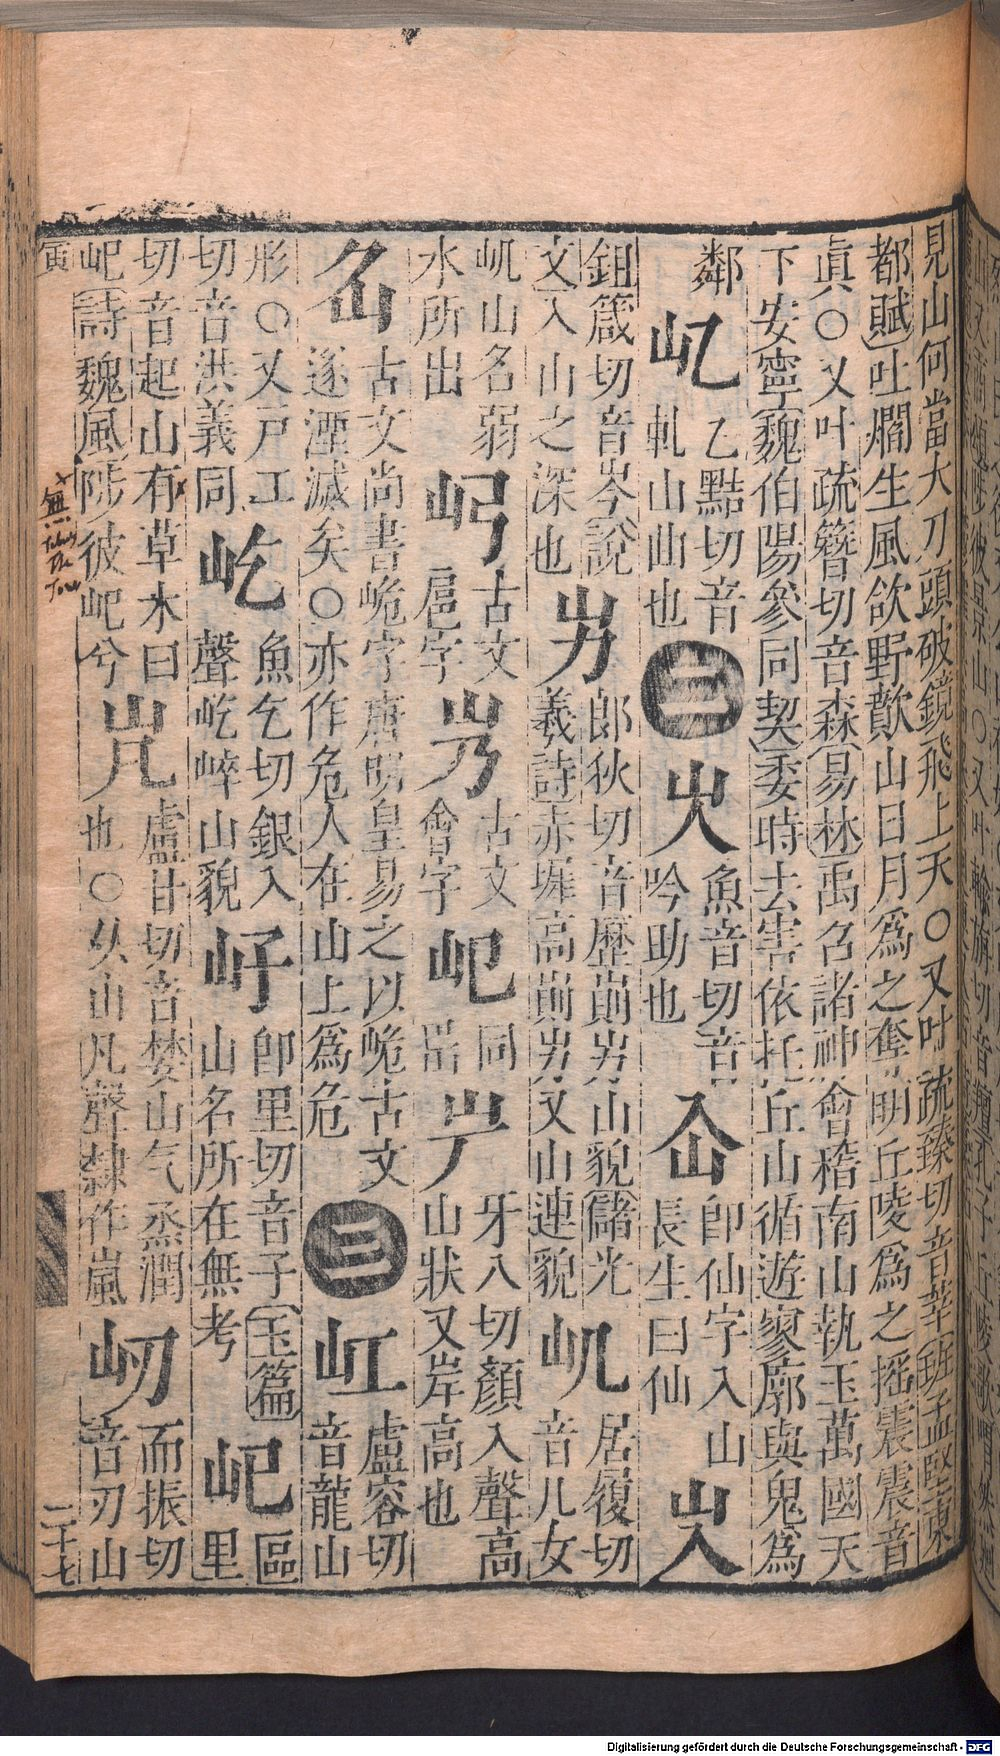 見山何當大刀頭破鏡飛上天○又叶疏臻切音莘班孟堅東
都賦吐爓生風欱野歕山日月爲之奪明丘陵爲之搖震震音
真○又叶疏簪切音森易林禹召諸神會稽南山執玉萬國天
下安寧魏伯陽參同契委時去害依托丘山循遊寥廓與鬼爲
鄰
乙黠切音
軋山曲也
二
魚音切音
吟助也
仚
卽仙字入山
長生曰仙
鉏箴切音岑說
文入山之深也
屴
郎狄切音歷崱屴山貌儲光
羲詩赤墀高崱屴又山連貌
屼
居履切
音儿女
屼山名弱
水所出
古文
扈字
古文
會字
同
出
屵
牙入切顏入聲高
山狀又岸高也
古文尚書峗字唐明皇易之以峗古文
遂湮滅矣○亦作危人在山上爲危
三
屸
盧容切
音龍山
形○又戸工
切音洪義同
屹
魚乞切銀入
聲屹崪山貌
卽里切音子玉篇
山名所在無考
屺
區里
切音起山有草木曰
屺詩魏風陟彼屺兮
盧甘切音婪山气烝潤
也○从山凡聲隸作嵐
屻
而振切
音刃山
寅
二十七
無
Digitalisierung gefördert durch die Deutsche Forschungsgemeinschaft - DFG